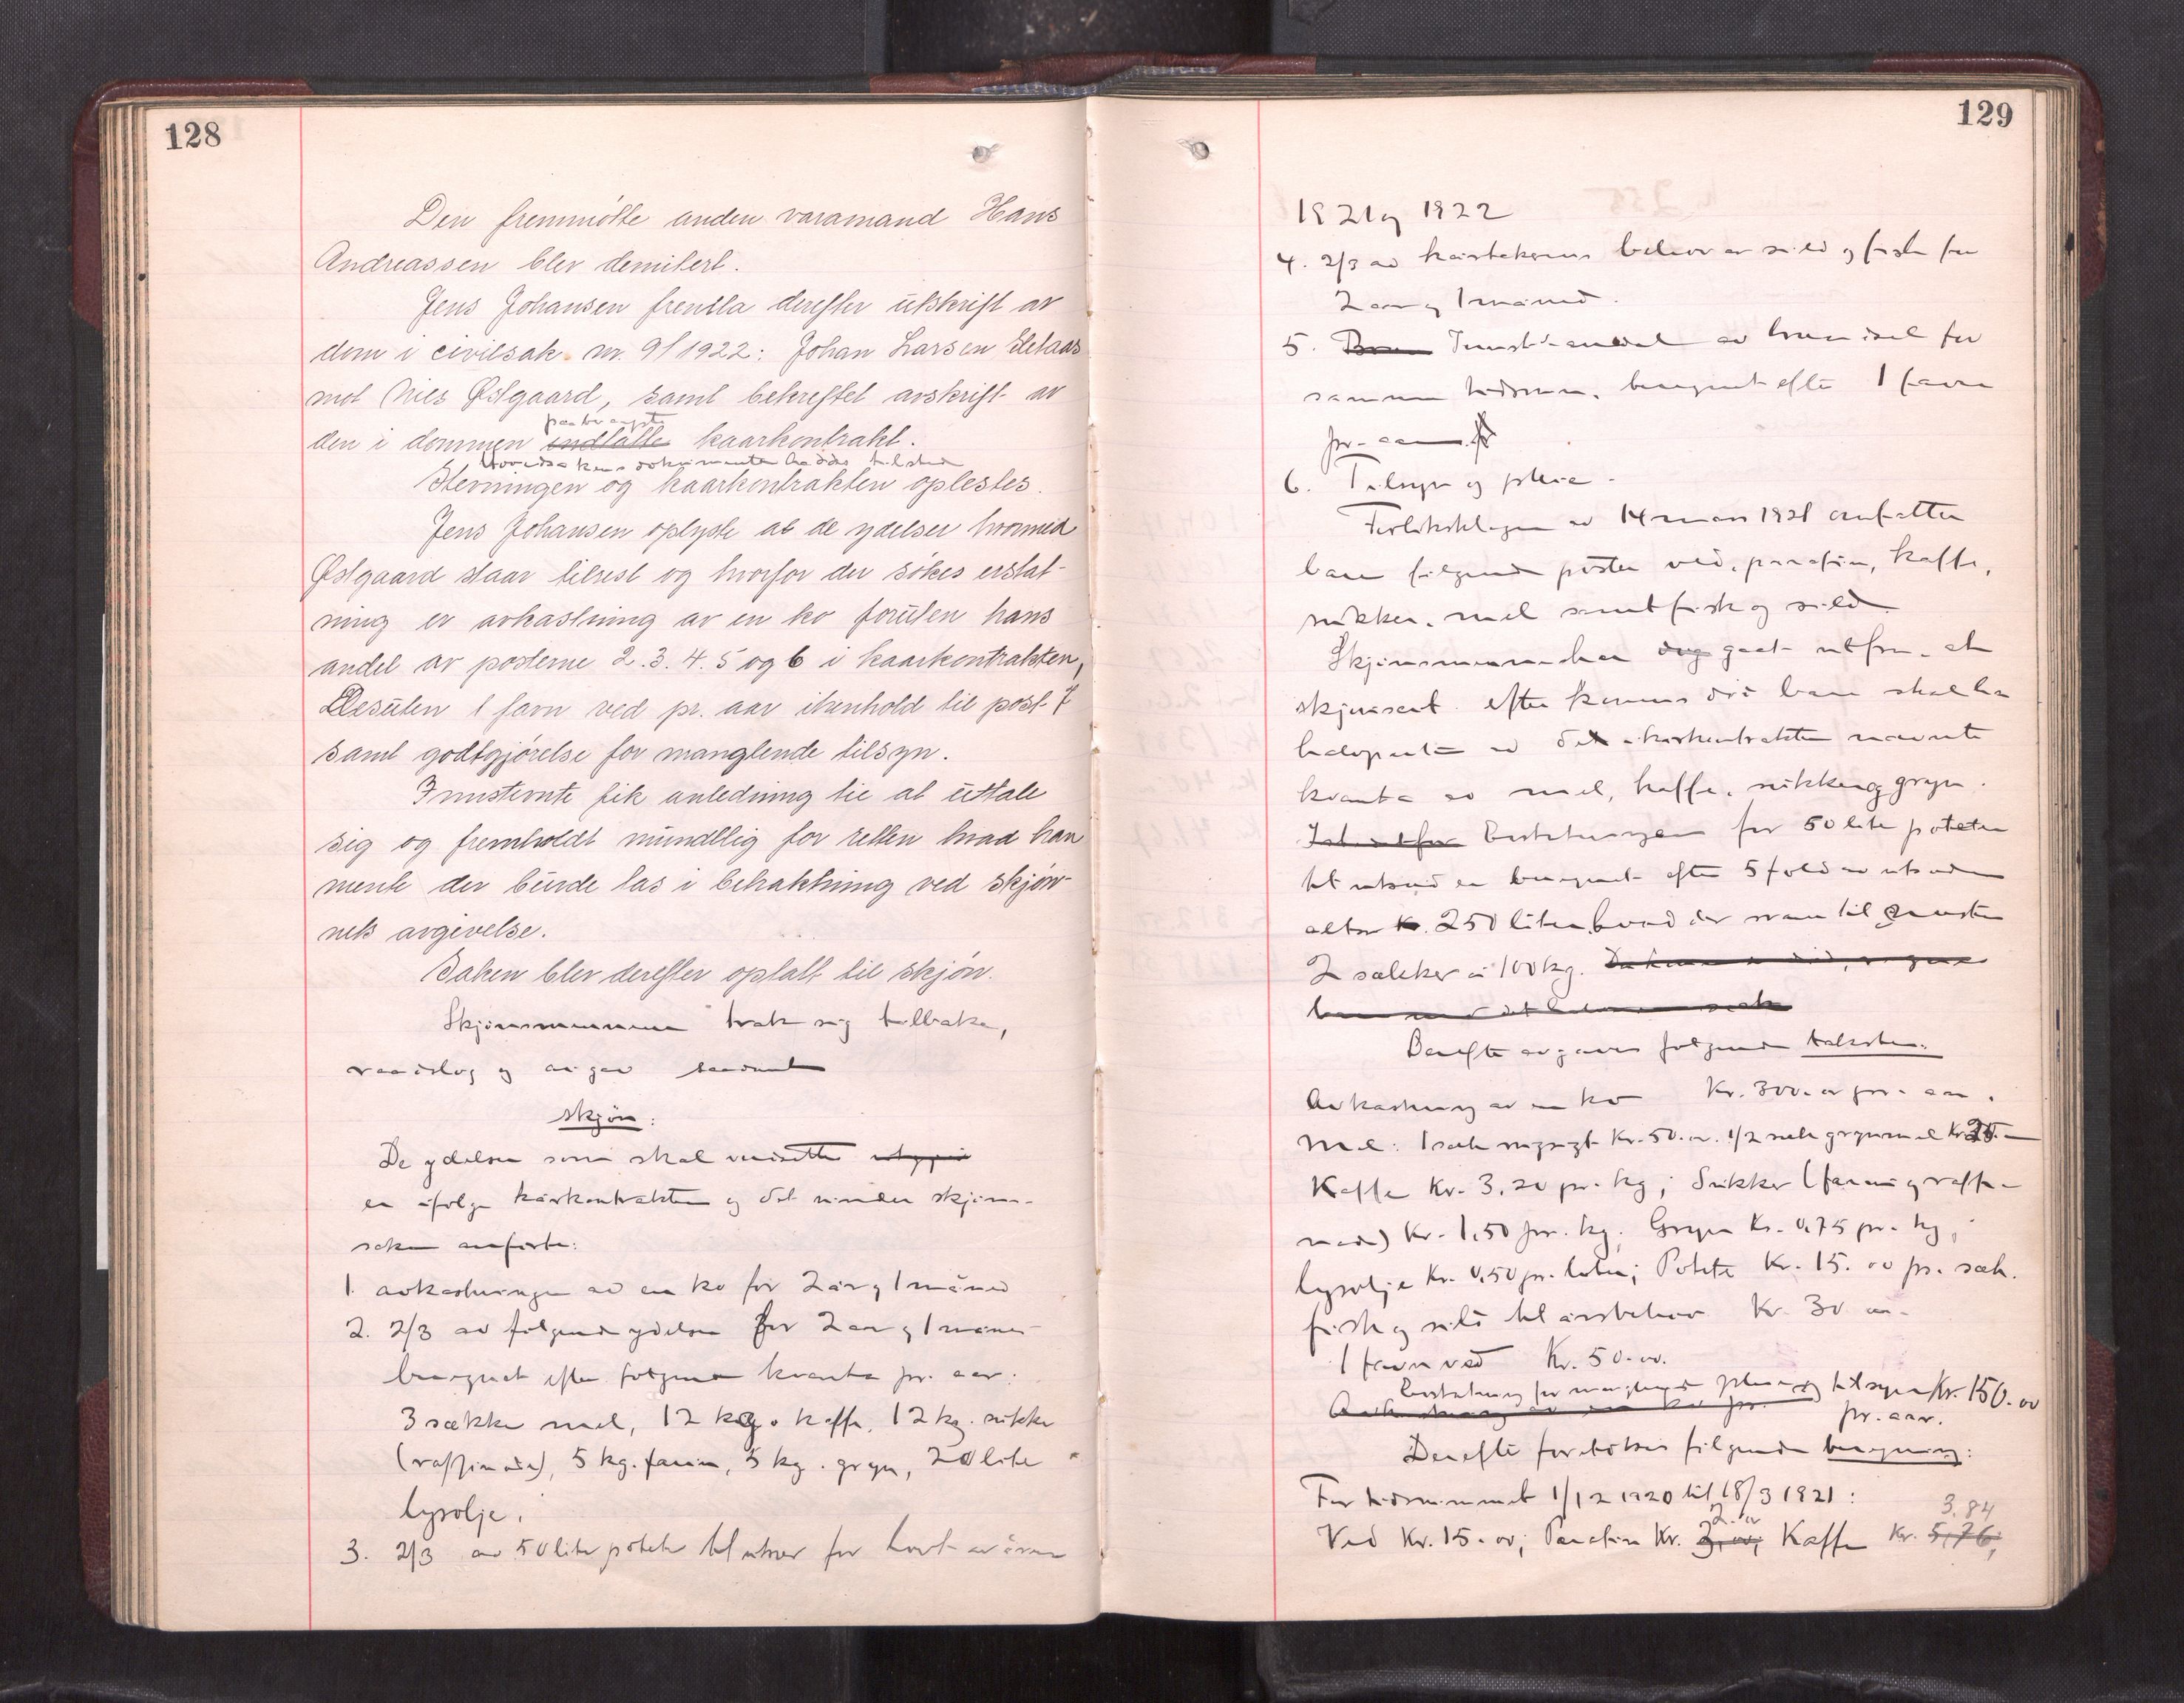 128
Den fremmötte anden varamand Hans
Andreassen blev demitert.
Jens Johansen fremla derefter utskrift av
dom i civilsak nr. 9/1922: Johan Larsen Eletaas
mot Nils Østgaard, samt bekreftet avskrift av
paaberopte
den i dommen indtatte kaarkontrakt.
Hovedsakens dokumenter haddes tilstede
Stevningen og kaarkontrakten oplestes.
Jens Johansen oplyste at de ydelser hvormed
Østgaard staar tilrest og hvorfor der sökes erstat-
ning er avkastning av en ko foruten hans
andel av posterne 2. 3. 4. 5 og 6 i kaarkontrakten,
Desuten 1 favn ved pr. aar ihenhold til post 7
samt godtgjörelse for manglende tilsyn.
Innstevnte fik anledning til at uttale
sig og fremholdt mundtlig for retten hvad han
mente der burde tas i betraktning ved skjön-
nets avgivelse.
Saken blev derefter optatt til skjön.
Skjönsmennene trak sig tilbake,
raadslog og avgav saadant
skjön:
De ydelser som skal verdsettes
er ifölge kårkontrakten og det under skjöns-
saken anförte:
1. avkastningen av en ko for 2 år og 1 måned
2. 2/3 av fölgende ydelser for 2 aar og 1 måned
beregnet efter fölgende kvanta pr. aar:
3 sækker mel, 12 kg. kaffe, 12 kg. sukker
(raffinade), 5 kg. farin, 5 kg. gryn, 20 liter
lysolje.
3. 2/3 av 50 liter poteter til utsæd for hvert av årene
129
1921 og 1922
4. 2/3 av kårtakerens behov av sild og fisk for
2 aar og 1 måned.
5. av brændsel for
samme tidsrum, beregnet efter 1 favn
pr. aar
6. Tilsyn og pleie.
Forliksklagen av 14 mars 1921 omfatter
bare fölgende poster ved, parafin, kaffe,
sukker, mel samt fisk og sild
Skjönsmennene har gaat ut fra, at
skjönsent efter bare skal ha
halvparten av det i kårkontrakten nævnte
kvanta av mel, kaffe, sukker og gryn.
Erstatningen for 50 liter poteter
til utsæd er beregnet efter 5 fold av utsæden
altså 250 liter, hvad der svarer til
2 sækker à 100 kg.
Derefter avgaves fölgende takster:
Avkastning av en ko Kr. 300.00 pr. aar.
Mel: 1 sæk Kr. 50.00. 1/2 sæk grynmel Kr. 25.-
Kaffe Kr. 3,20 pr. kg; Sukker (farin og raffi-
nade) Kr. 1,50 pr. kg. Gryn Kr. 0,75 pr. kg;
lysolje Kr. 0,50 pr. liter; Poteter Kr. 15.00 pr. sæk.
fisk og sild til årsbehov Kr. 30.00.
1 favn ved Kr. 50.00.
Erstatning for manglende pleie og tilsyn Kr. 150.00
Avkastning av en ko pr. pr. aar.
Derefter foretokes fölgende beregning:
For tidsrummet 1/12 1920 til 18/3 1921:
2.00 3.84
Ved Kr. 15.00; Parafin Kr. 3,00; Kaffe Kr. 5,76;